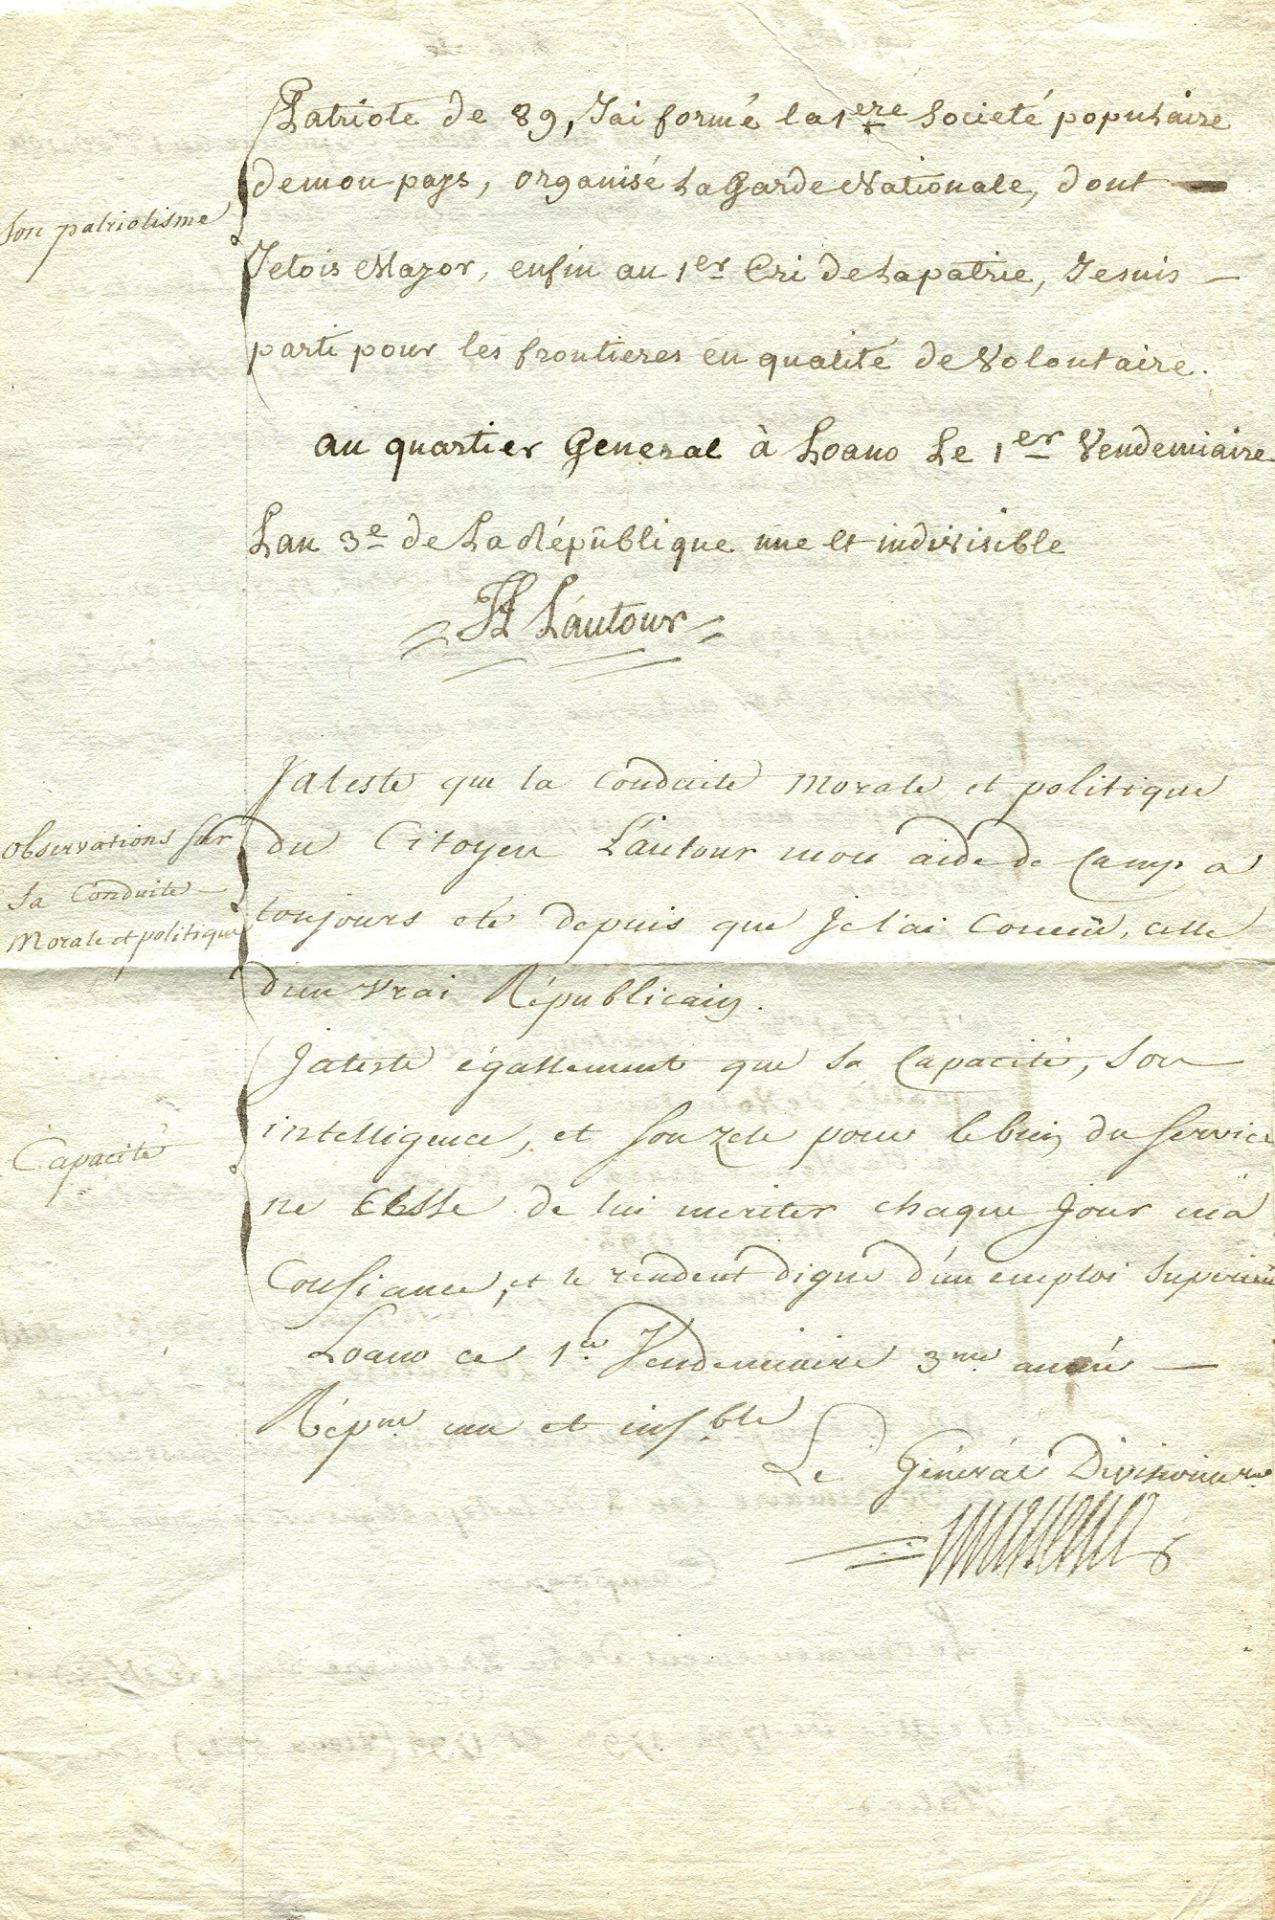 Son patriotisme
Patriote de 89, J'ai formé la 1ere Société populaire
de mon pays, organisé la Garde Nationale, dont
J'etois Major, enfin au 1er Cri de la patrie, Je suis
parti pour les frontieres en qualité de Volontaire.
au quartier General à Loano Le 1er Vendemiaire
Lan 3e de La République une et indivisible
Lautour
Observations sur
Sa Conduite
Morale et politique
J'ateste que la Conduite Morale et politique
du Citoyen Lautour mon aide de Camp a
toujours eté depuis que Je l'ai Connû, celle
d'un vrai Républicain.
Capacité
J'ateste égallement que sa Capacité, son
intelligence, et son zele pour le bien du service
ne Cesse de lui meriter chaque Jour ma
Confiance, et le rendent digne d'un emploi Superieur
Loano ce 1er Vendemiaire 3me année
Répque une et indble
Le Général Divisionaire
Massena